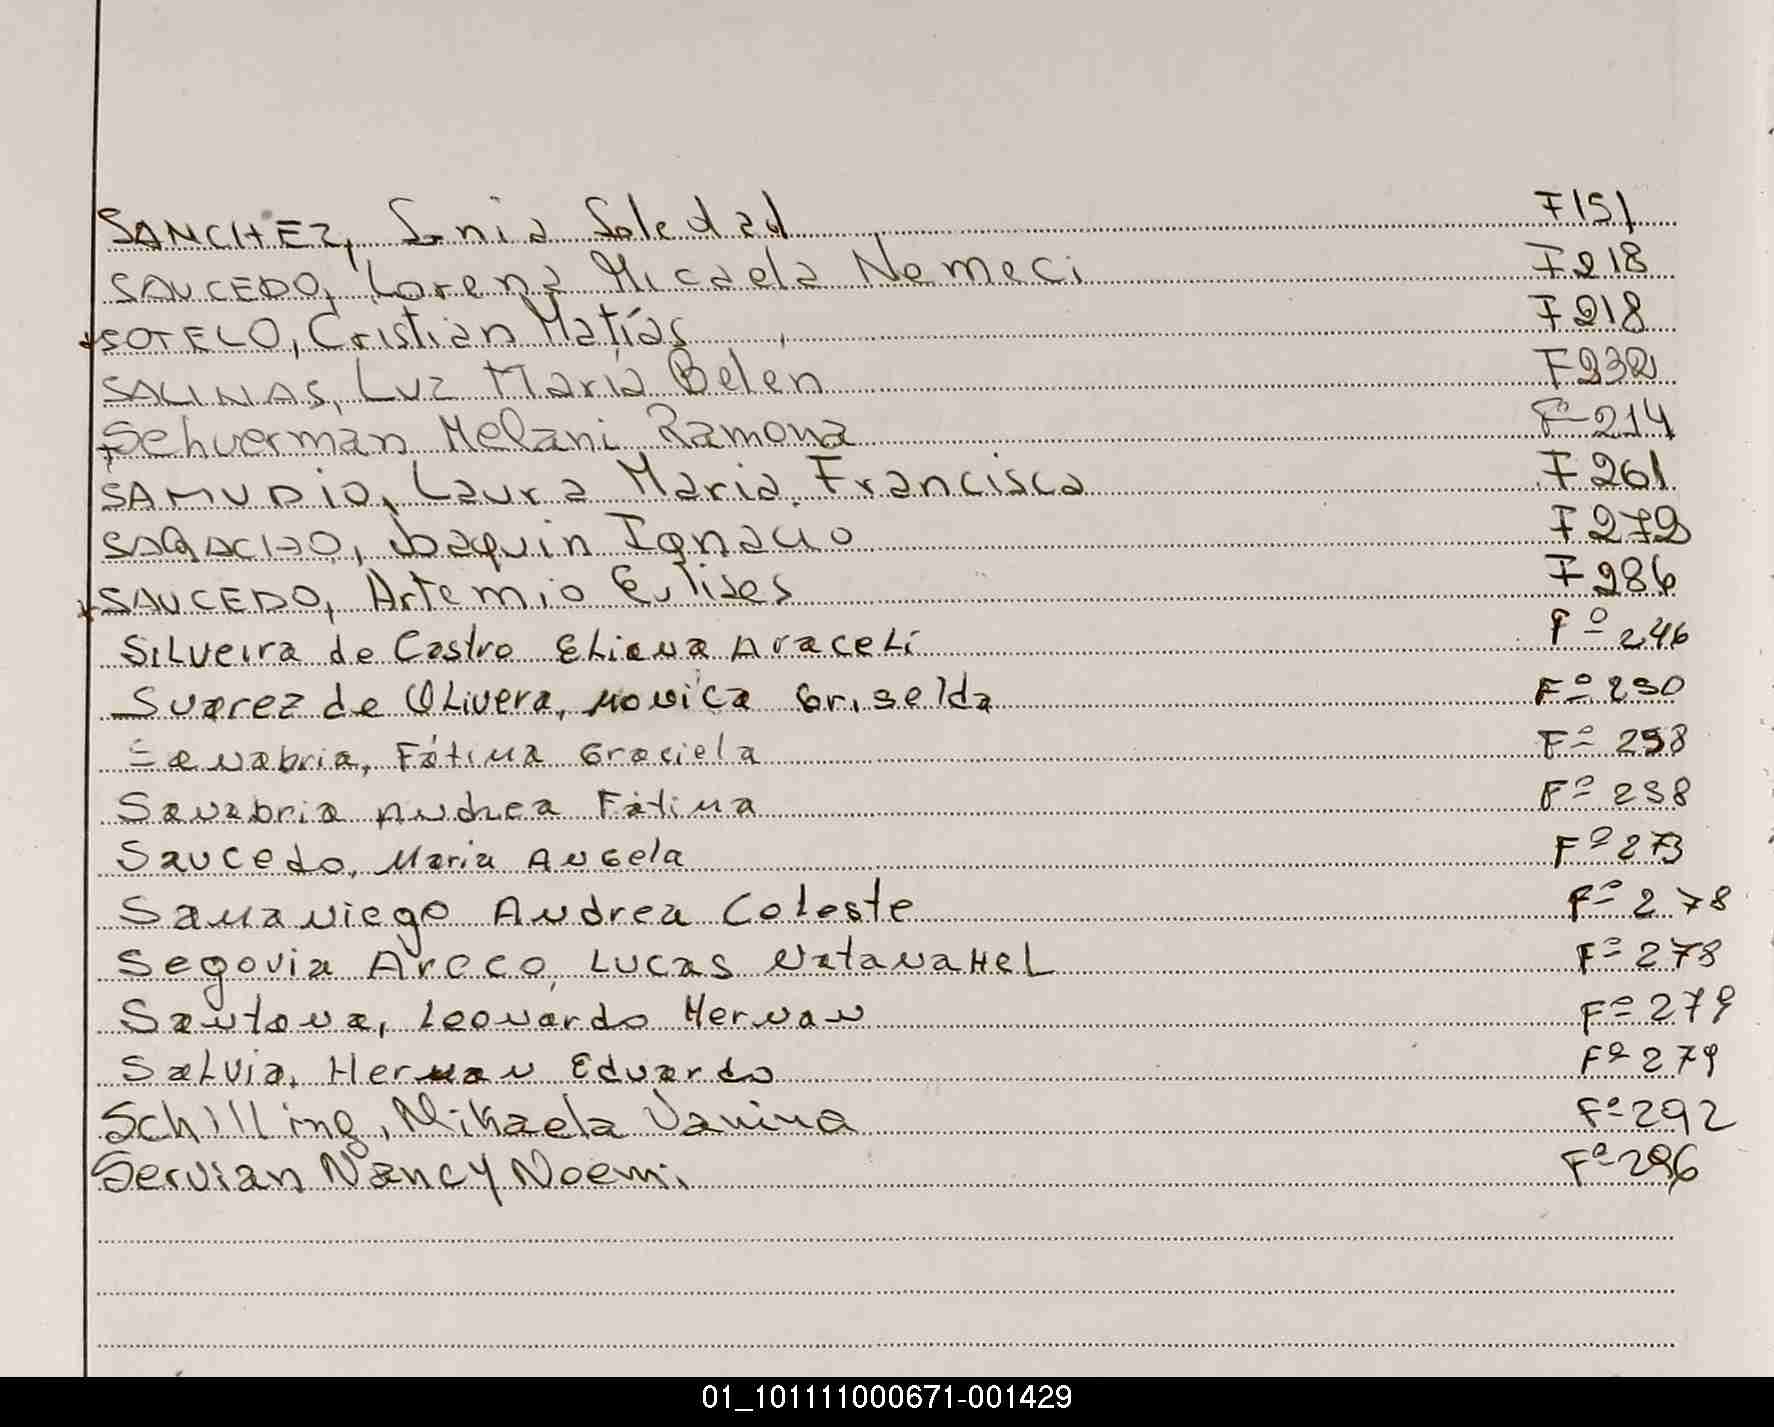 SANCHEZ, Sonia Soledad F 151
SAUCEDO, Lorena Micaela Nemeci F 218
SOTELO, Cristian Matías F 218
SALINAS, Luz María Belen F 232
Schuerman Melani Ramona Fº 214
SAMUDIO, Laura Maria Francisca F 261
Joaquin Ignacio F 272
SAUCEDO, Artemio Eulises F 286
Silveira de Castro Eliana Araceli Fº 246
Suarez de Olivera, Monica Griselda Fº 250
Sanabria, Fátima Graciela Fº 258
Sanabria Andrea Fátima Fº 258
Saucedo, Maria Angela Fº 273
Samaniego Andrea Celeste Fº 278
Segovia Arcco, Lucas Natanahel Fº 278
Santana, Leonardo Hernan Fº 279
Salvia, Hernan Eduardo Fº 279
Schilling, Mikaela Vanina Fº 292
Servian Nancy Noemi Fº 296
01_101111000671-001429